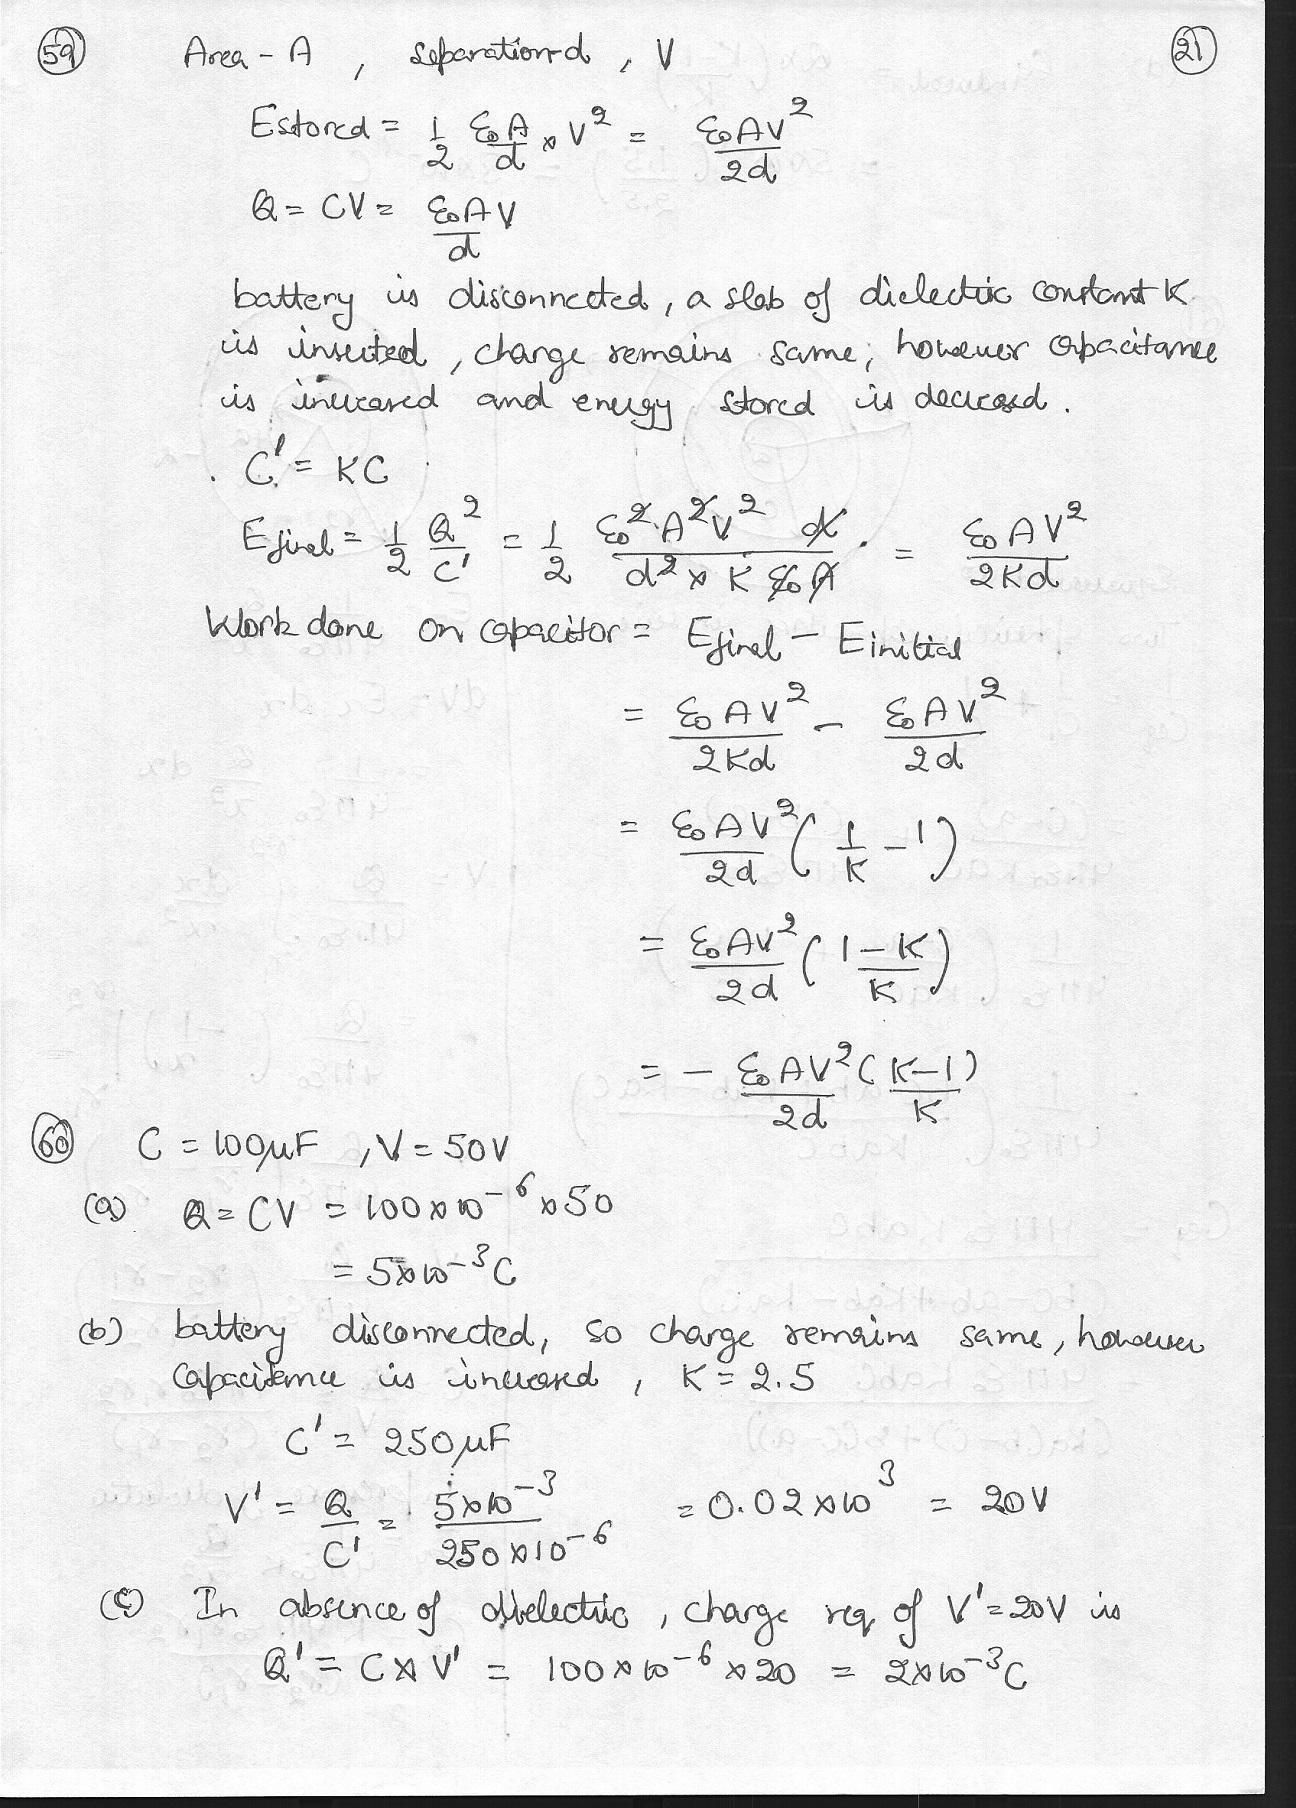 59 Area - A , separation-d , V 21
Estored = 1/2 ε₀A/d × V² = ε₀AV²/2d
Q = CV = ε₀AV/d
battery is disconnected, a slab of dielectric constant K
is inserted, charge remains same, however capacitance
is increased and energy stored is decreased.
C' = KC
Efinal = 1/2 Q²/C' = 1/2 ε₀²A²V² d/d² × K ε₀A = ε₀AV²/2Kd
Work done on capacitor = Efinal - Einitial
= ε₀AV²/2Kd - ε₀AV²/2d
= ε₀AV²/2d (1/K - 1)
= ε₀AV²/2d (1-K/K)
= - ε₀AV²/2d (K-1)/K
60 C = 100μF , V = 50V
(a) Q = CV = 100×10⁻⁶×50
= 5×10⁻³C
(b) battery disconnected, so charge remains same, however
capacitance is increased , K = 2.5
C' = 250μF
V' = Q/C' = 5×10⁻³/250×10⁻⁶ = 0.02×10³ = 20V
(c) In absence of dielectric , charge req of V'=20V is
Q' = C×V' = 100×10⁻⁶×20 = 2×10⁻³C